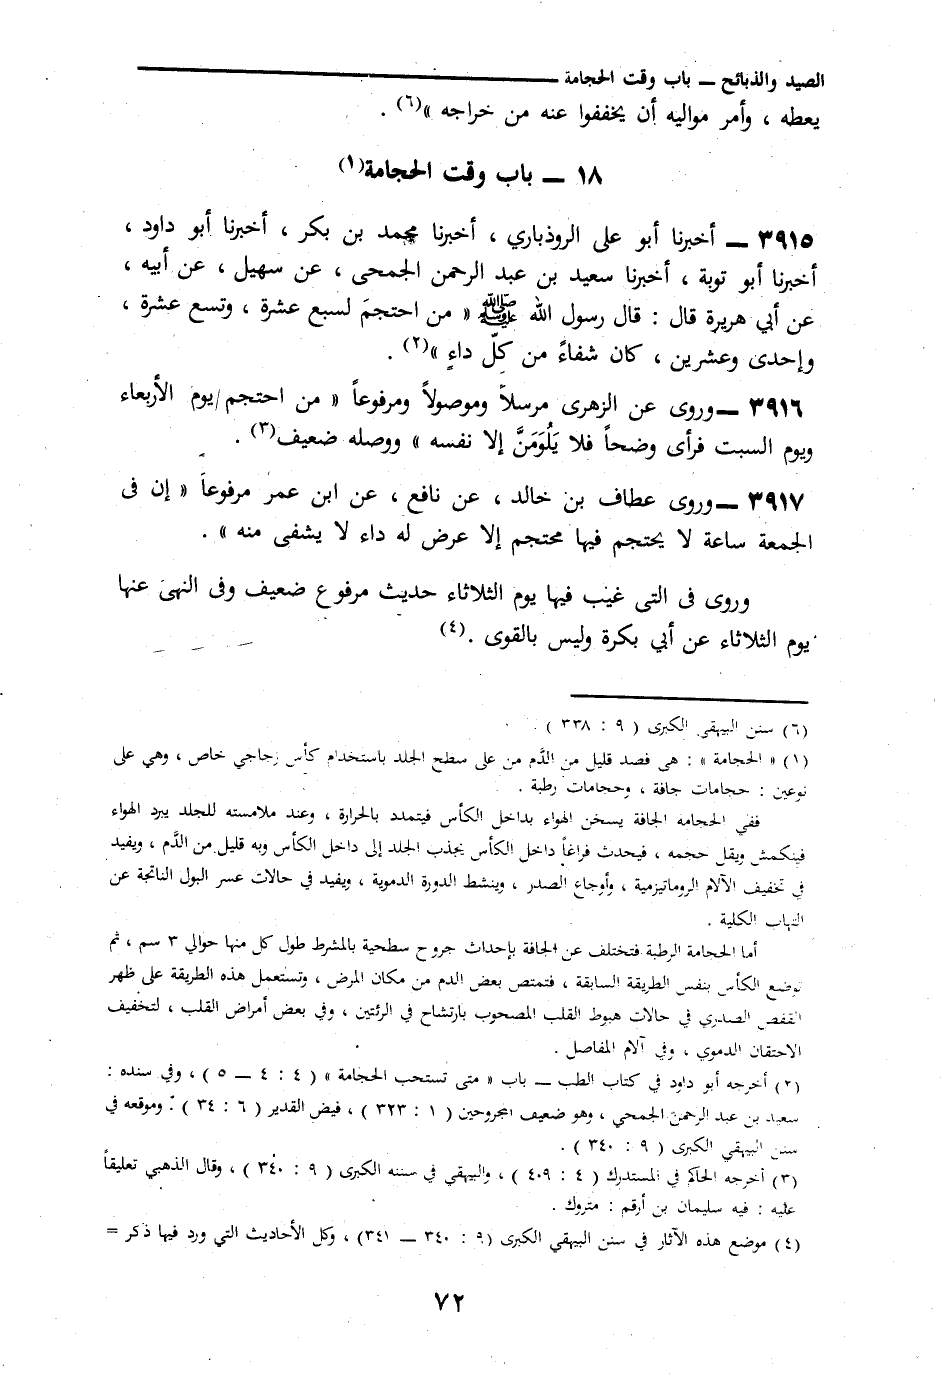 الصيد والذبائح ــ باب وقت الحجامة
يعطه ، وأمر مواليه أن يخففوا عنه من خراجه »(٦) .
١٨ ــ باب وقت الحجامة(١)
٣٩١٥ ــ أخبرنا أبو على الروذباري ، أخبرنا محمد بن بكر ، أخبرنا أبو داود ،
أخبرنا أبو توبة ، أخبرنا سعيد بن عبد الرحمن الجمحى ، عن سهيل ، عن أبيه ،
عن أبي هريرة قال : قال رسول الله ﷺ « من احتجمَ لسبع عشرة ، وتسع عشرة ،
وإحدى وعشرين ، كان شفاءً من كلّ داءٍ »(٢) .
٣٩١٦ ــ وروى عن الزهرى مرسلاً وموصولاً ومرفوعاً « من احتجم/يوم الأربعاء
ويوم السبت فرأى وضحاً فلا يَلُومَنَّ إلا نفسه » ووصله ضعيف(٣) .
٣٩١٧ ــ وروى عطاف بن خالد ، عن نافع ، عن ابن عمر مرفوعاً « إن فى
الجمعة ساعة لا يحتجم فيها محتجم إلا عرض له داء لا يشفى منه » .
وروى فى التى غيّب فيها يوم الثلاثاء حديث مرفوع ضعيف وفى النهى عنها
يوم الثلاثاء عن أبي بكرة وليس بالقوى .(٤)
(٦) سنن البيهقى الكبرى ( ٩ : ٣٣٨ ) .
(١) « الحجامة » : هى فصد قليل من الدَّم من على سطح الجلد باستخدام كأس زجاجي خاص ، وهي على
نوعين : حجامات جافة ، وحجامات رطبة .
ففي الحجامه الجافة يسخن الهواء بداخل الكأس فيتمدد بالحرارة ، وعند ملامسته للجلد يبرد الهواء
فينكمش ويقل حجمه ، فيحدث فراغاً داخل الكأس يجذب الجلد إلى داخل الكأس وبه قليل من الدَّم ، ويفيد
في تخفيف الآلام الروماتيزمية ، وأوجاع الصدر ، وينشط الدورة الدموية ، ويفيد في حالات عسر البول الناتجة عن
التهاب الكلية .
أما الحجامة الرطبة فتختلف عن الجافة بإحداث جروح سطحية بالمشرط طول كل منها حوالي ٣ سم ، ثم
توضع الكأس بنفس الطريقة السابقة ، فتمتص بعض الدم من مكان المرض ، وتستعمل هذه الطريقة على ظهر
القفص الصدري في حالات هبوط القلب المصحوب بارتشاح في الرئتين ، وفي بعض أمراض القلب ، لتخفيف
الاحتقان الدموي ، وفي آلام المفاصل .
(٢) أخرجه أبو داود في كتاب الطب ــ باب « متى تستحب الحجامة » ( ٤ : ٤ ــ ٥ ) ، وفي سنده :
سعيد بن عبد الرحمن الجمحي ، وهو ضعيف المجروحين ( ١ : ٣٢٣ ) ، فيض القدير ( ٦ : ٣٤ ) . وموقعه في
سنن البيهقي الكبرى ( ٩ : ٣٤٠ ) .
(٣) أخرجه الحاكم في المستدرك ( ٤ : ٤٠٩ ) ، والبيهقي في سننه الكبرى ( ٩ : ٣٤٠ ) ، وقال الذهبي تعليقاً
عليه : فيه سليمان بن أرقم : متروك .
(٤) موضع هذه الآثار في سنن البيهقي الكبرى (٩ : ٣٤٠ ــ ٣٤١) ، وكل الأحاديث التي ورد فيها ذكر =
٧٢